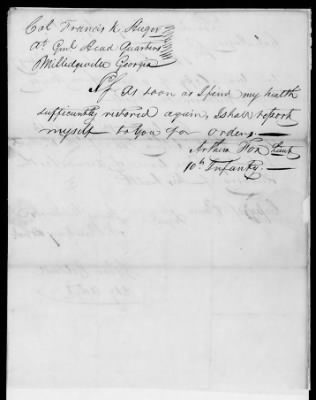 Col Francis K Huger
At Gnl Head Quarters
Milledgeville Georgia
As soon as I find my health
sufficiently restored again, I shall report
myself to you for orders.
Arthur Fox Lieut
10th Infantry.